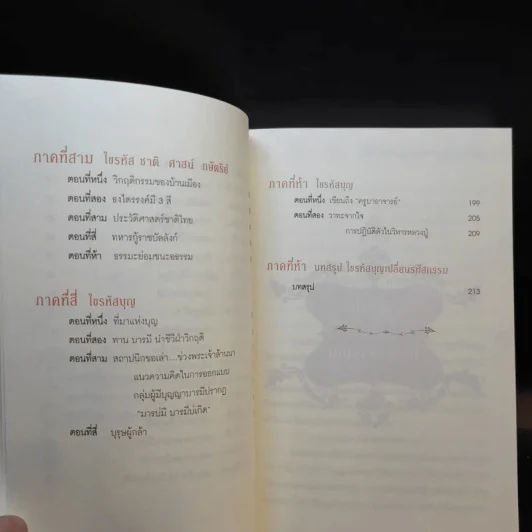 ภาคที่สาม ไขรหัส ชาติ ศาสน์ กษัตริย์
ตอนที่หนึ่ง วิกฤติกรรมของบ้านเมือง
ตอนที่สอง ธงไตรรงค์มี 3 สี
ตอนที่สาม ประวัติศาสตร์ชาติไทย
ตอนที่สี่ ทหารกู้ราชบัลลังก์
ตอนที่ห้า ธรรมะย่อมชนะอธรรม
ภาคที่สี่ ไขรหัสบุญ
ตอนที่หนึ่ง ที่มาแห่งบุญ
ตอนที่สอง ทาน บารมี นำชีวีฝ่าวิกฤติ
ตอนที่สาม สถาปนิกขอเล่า...ช่วงพระเจ้าล้านนา
แนวความคิดในการออกแบบ
กลุ่มผู้มีบุญญาบารมีปรากฏ
"มารบ่มี บารมีบ่เกิด"
ตอนที่สี่ บุรุษผู้กล้า
ภาคที่ห้า ไขรหัสบุญ
ตอนที่หนึ่ง เขียนถึง "ครูบาอาจารย์" 199
ตอนที่สอง วาทะจากใจ 205
การปฏิบัติตัวในวิหารหลวงปู่ 209
ภาคที่ห้า บทสรุป ไขรหัสบุญเปลี่ยนรหัสกรรม
บทสรุป 213